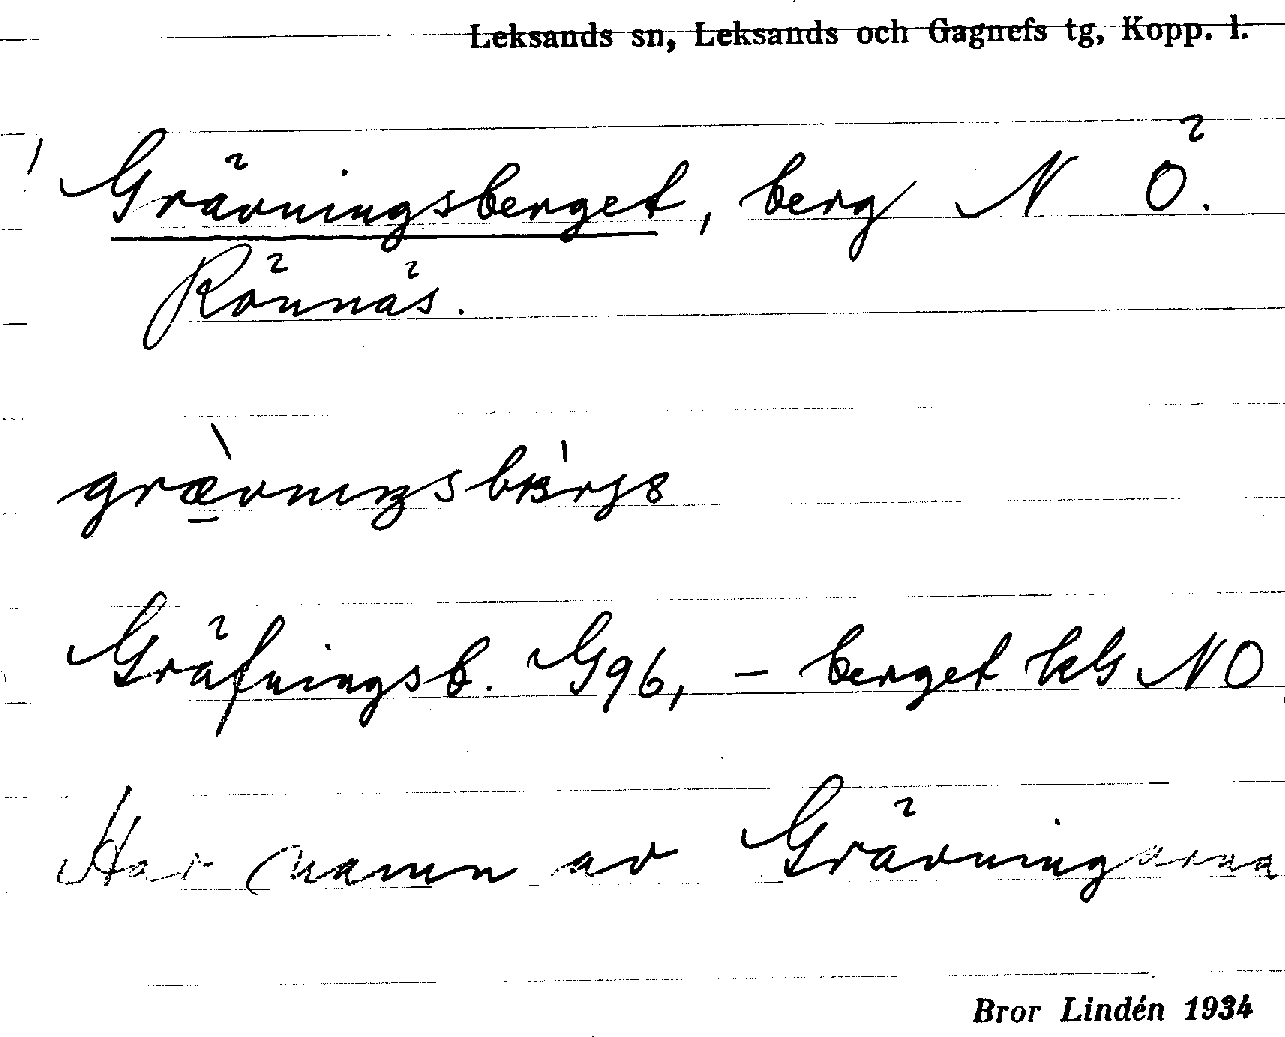 Leksands sn, Leksands och Gagnefs tg, Kopp. l.
Grävningsberget, berg N Ö.
Rönnäs.
Gräfningsb. G96, - berget NO
Har namn av Grävningarna
Bror Lindén 1934